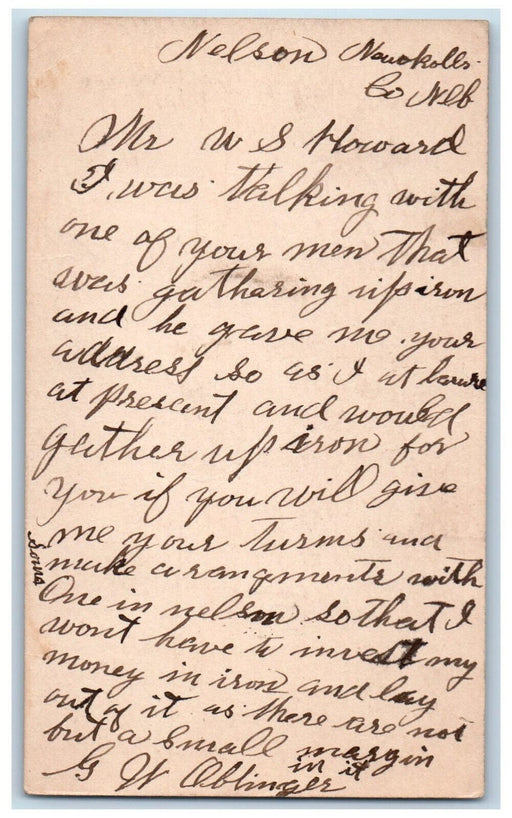 Nelson Nuckolls
Co Neb
Mr W S Howard
I was talking with
one of your men that
was gathering up iron
and he gave me your
address so as I at
at present and would
gather up iron for
you if you will give
me your turms and
make arangments with
Some
One in nelson so that I
wont have to invest my
money in iron and lay
out of it as there are not
but a small margin
in it
G W Oblinger